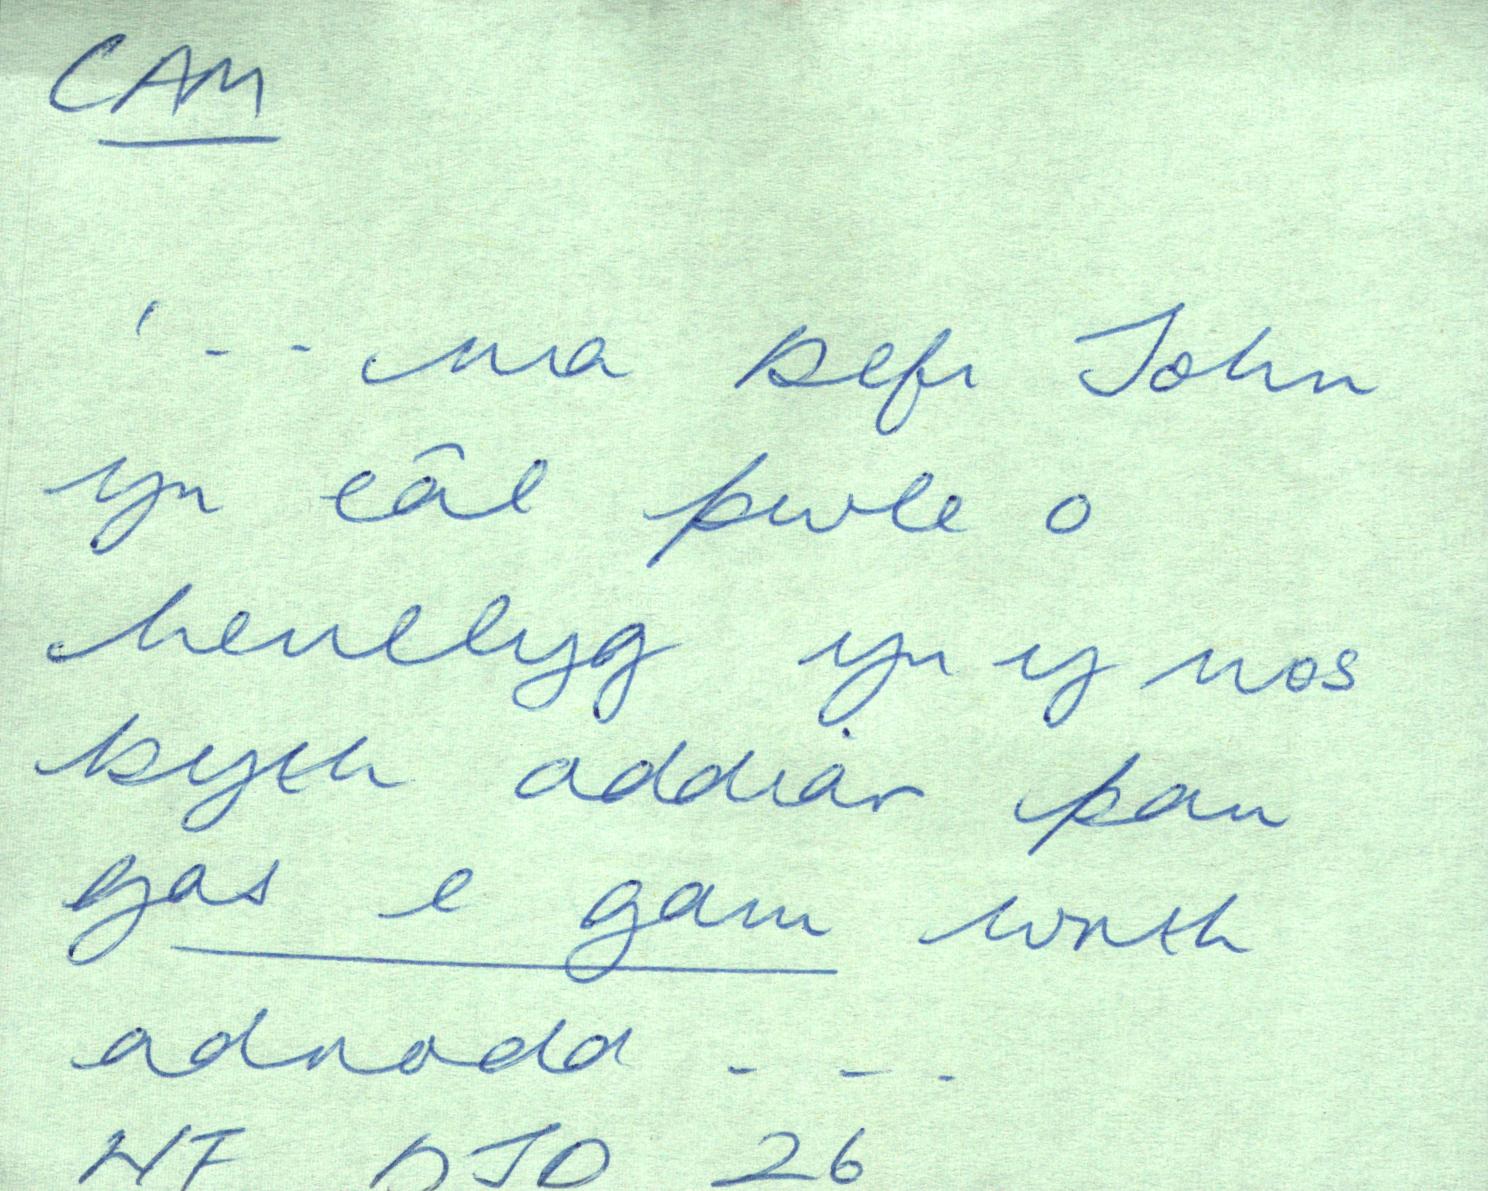 CAM
'... ma Defi John
yn câl pwle o
henllyg yn y nos
byth addiar pan
gas e gam wrth
adrodd ...
DJD 26